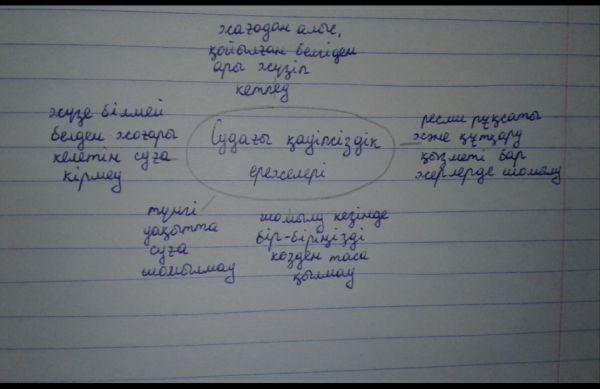 жағадан алыс,
қойылған белгіден
ары жүзіп
кетпеу
жүзе білмей
белден жоғары
келетін суға
кірмеу
Судағы қауіпсіздік
ережелері
ресми рұқсаты
және құтқару
қызметі бар
жерлерде шомылу
түнгі
уақытта
суға
шомылмау
шомылу кезінде
бір-біріңізді
көзден таса
қылмау